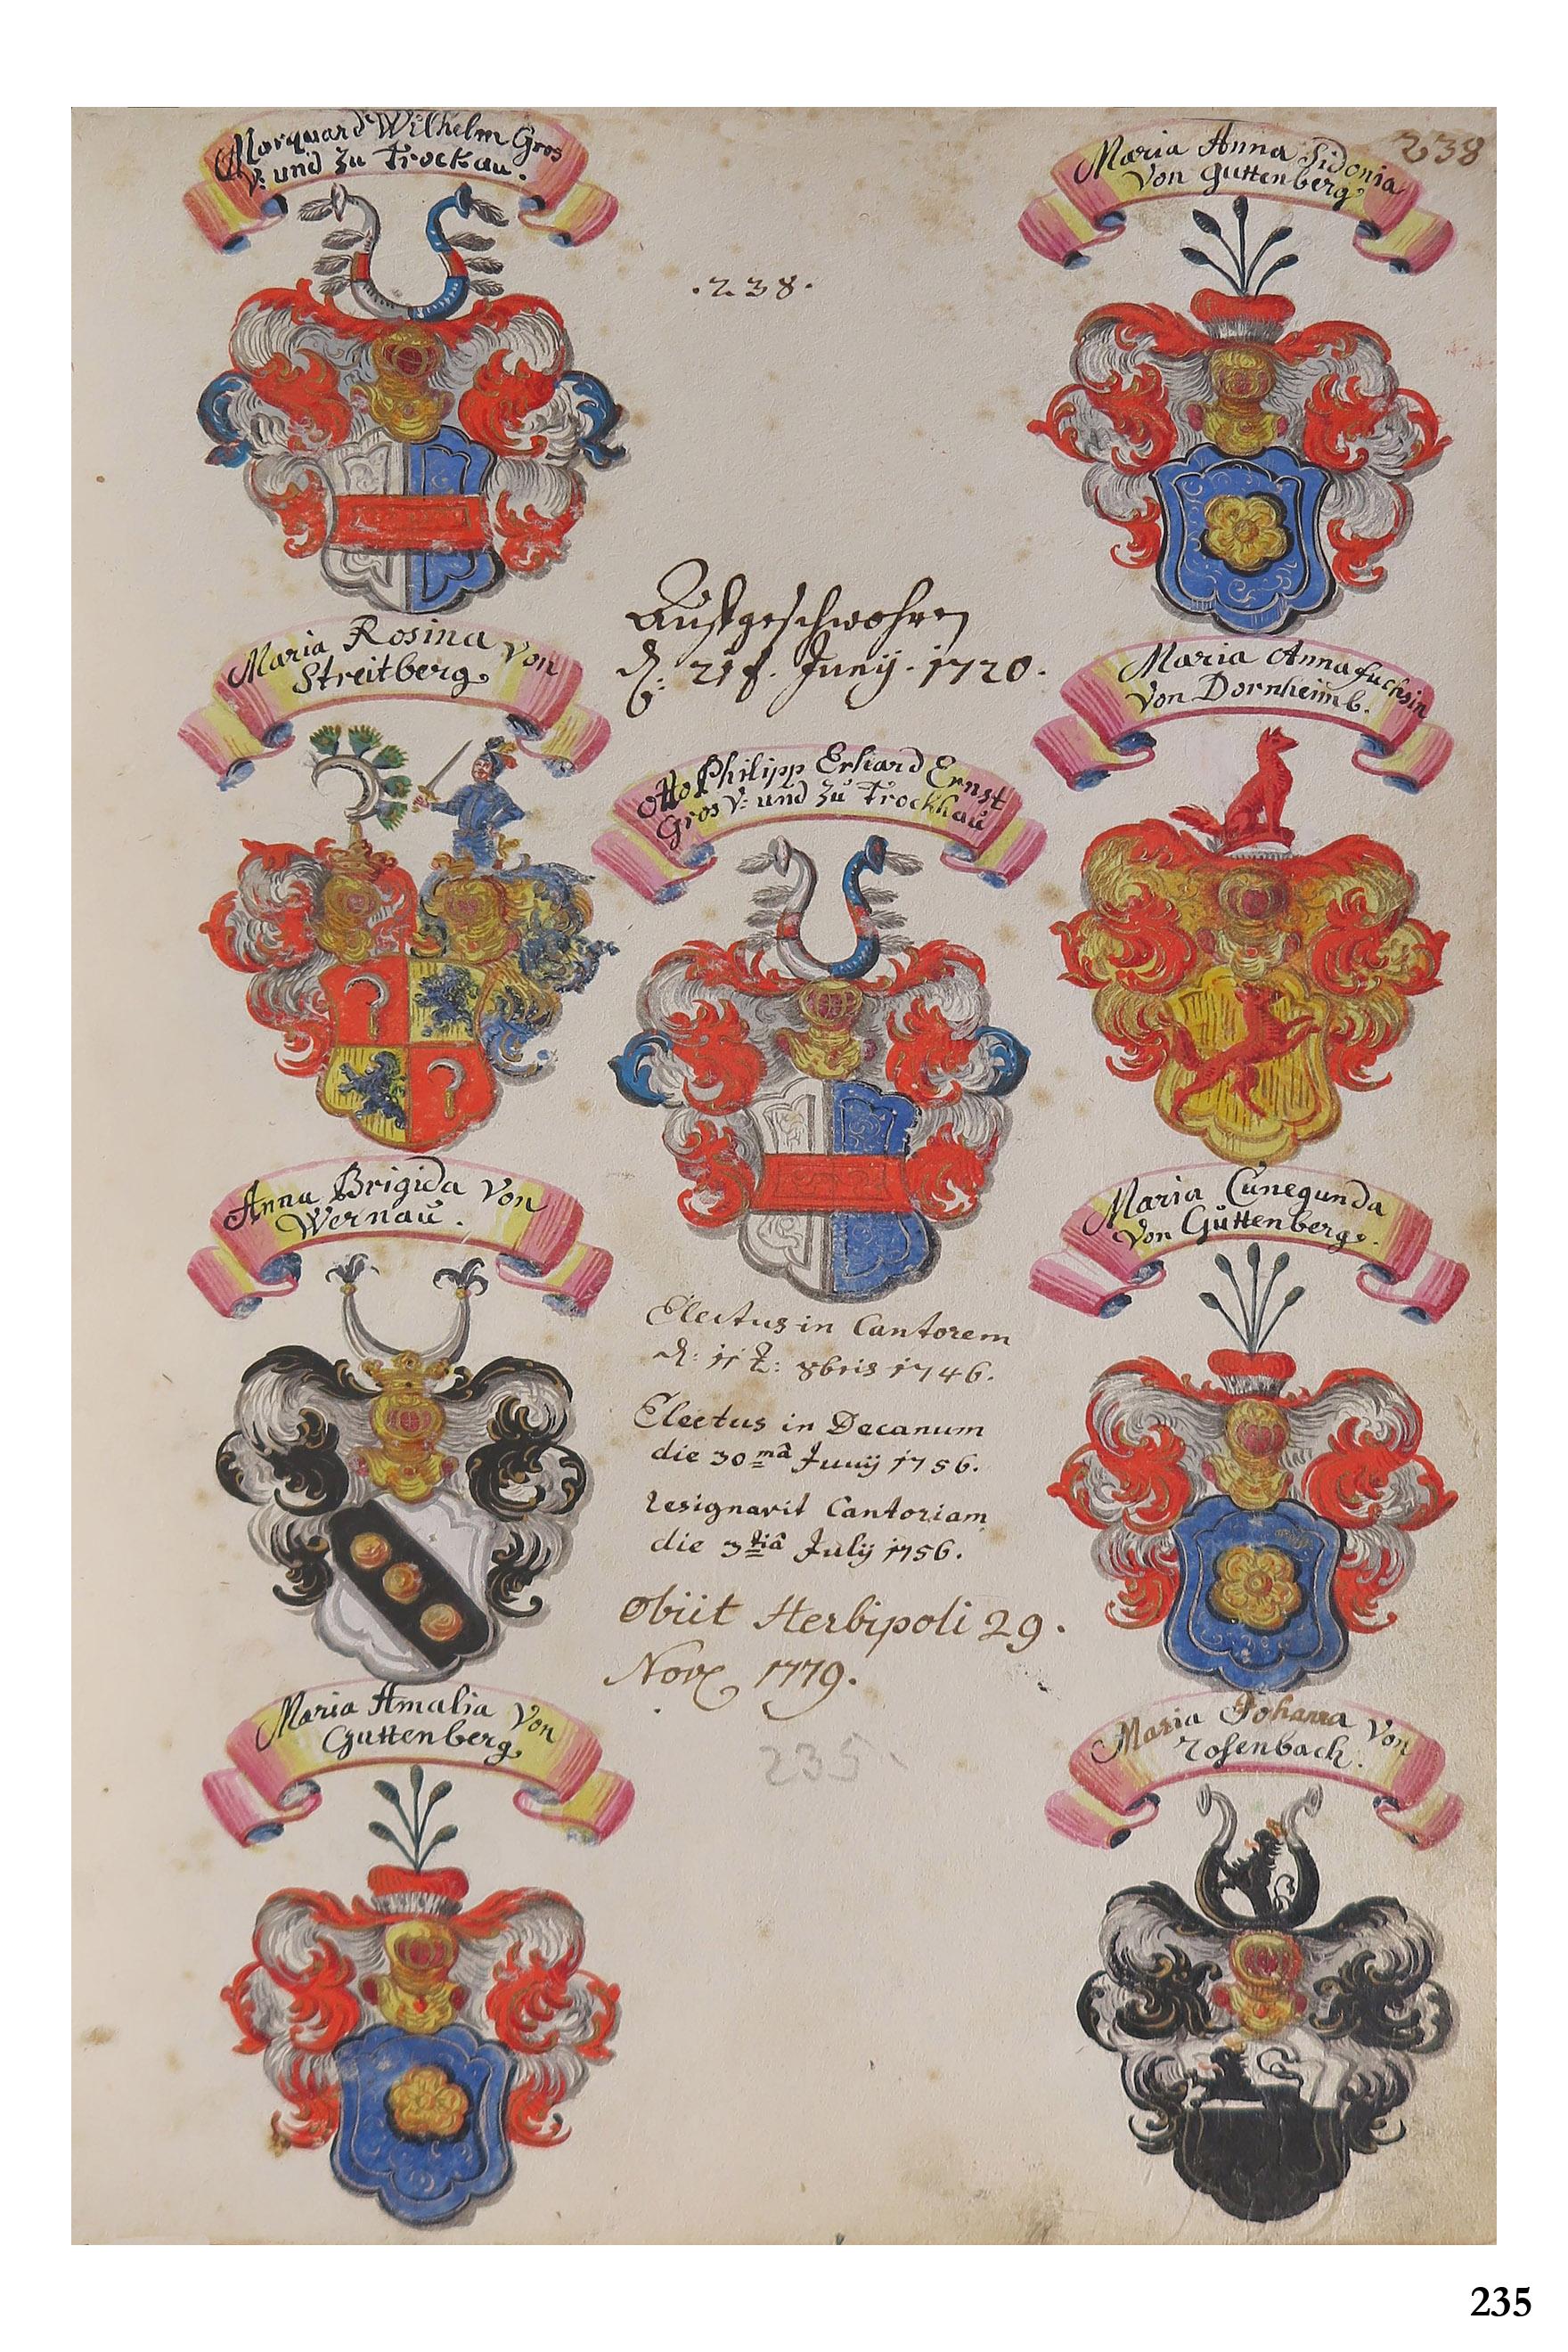 Marquard Wilhelm Gros
V: und zu Trockau.
Maria Anna Sidonia
Von Guttenberg
238
.238.
Maria Rosina Von
Streitberg.
Aufgeschwohren
d: 21t. Junÿ. 1720.
Maria Anna fuchsin
Von Dornheimb.
Otto Philipp Erhard Ernst
Gros V: und zu Trockhau
Anna Brigida Von
Wernau.
Maria Cunegunda
Von Güttenberg.
Electus in Cantorem
8bris 1746.
Electus in Decanum
die 30mâ Junÿ 1756.
resignavit Cantoriam
die 3tiâ Julÿ 1756.
obiit Herbipoli 29.
Nov. 1779.
235.
Maria Amalia Von
Guttenberg
Maria Johanna Von
rosenbach.
235